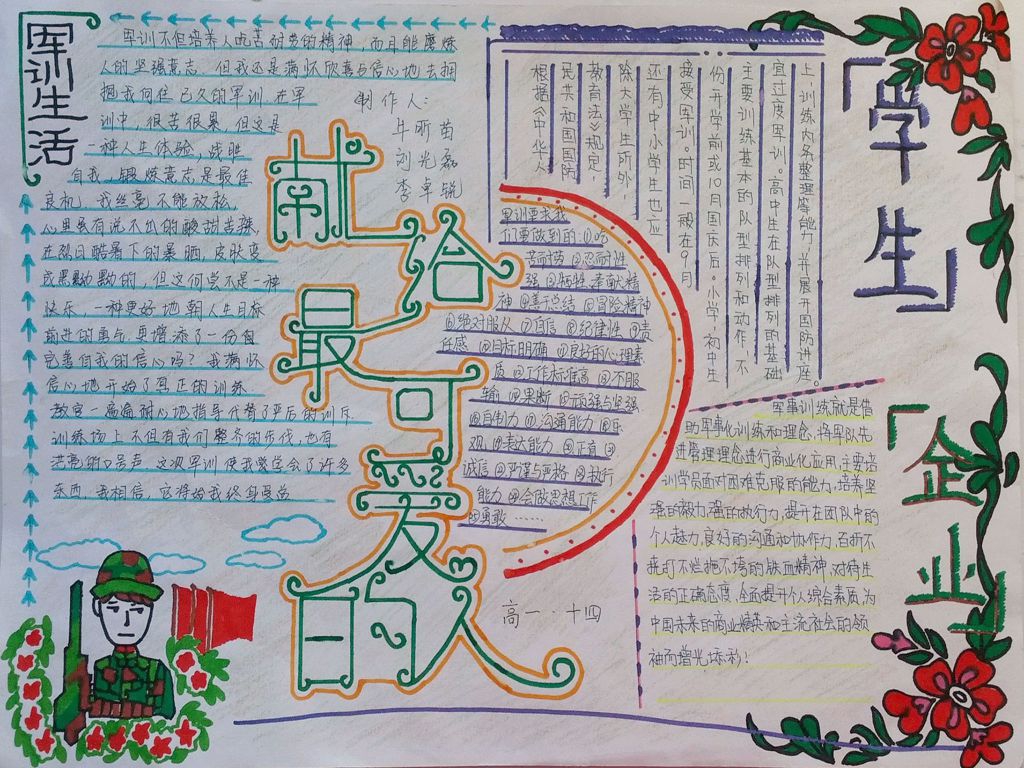 军训生活
军训不但培养人吃苦耐劳的精神，而且能磨炼
人的坚强意志.但我还是满怀欣喜与信心地去拥
抱我向往已久的军训.在军
训中，很苦很累，但这是
一种人生体验，战胜
自我，锻炼意志是最佳
良机，我丝毫不能放松，
心里虽有说不出的酸甜苦辣，
在烈日酷暑下的暴晒，皮肤变
成黑黝黝的，但这何尝不是一种
快乐，一种更好地朝人生目标
前进的勇气，更增添了一份自
完善自我的信心吗？我满怀
信心地开始了真正的训练
教官一遍遍耐心地指导代替了严厉的训斥
训练场上不但有我们整齐的步伐，也有
洪亮的口号声.这次军训使我学会了许多
东西，我相信，它将给我终身受益
制作人：
牛昕苗
刘光磊
李卓锐
献给最可爱的人
根据《中华人
民共和国国防
教育法》规定，
除大学生所外，
还有中小学生也应
接受军训。时间一般在9月
份开学前或10月国庆后。小学，初中生
主要训练基本的队型排列和动作，不
宜过度军训。高中生在队型排列的基础
上训练内务整理等能力，并展开国防讲座。
「学生」
军训要求我
们要做到的：①吃
苦耐劳 ②忍耐性
强 ③牺牲，奉献精
神 ④善于总结 ⑤冒险精神
⑥绝对服从 ⑦自信 ⑧纪律性 ⑨责
任感 ⑩目标明确 ⑪良好的心理素
质 ⑫工作标准高 ⑬不服
输 ⑭果断 ⑮顽强与坚强
⑯自制力 ⑰沟通能力 ⑱乐
观 ⑲表达能力 ⑳正直
诚信 严谨与严格 执行
能力 会做思想工作
勇敢……
高一.十四
「企业」
军事训练就是借
助军事化训练和理念，将军队先
进管理理念进行商业化应用，主要培
训学员面对困难克服的能力，培养坚
强的毅力，强的执行力，提升在团队中的
个人魅力，良好的沟通和协作力，百折不
挠，打不烂拖不垮的铁血精神，对待生
活的正确态度，全面提升个人综合素质，为
中国未来的商业精英和主流社会的领
袖而增光添彩！